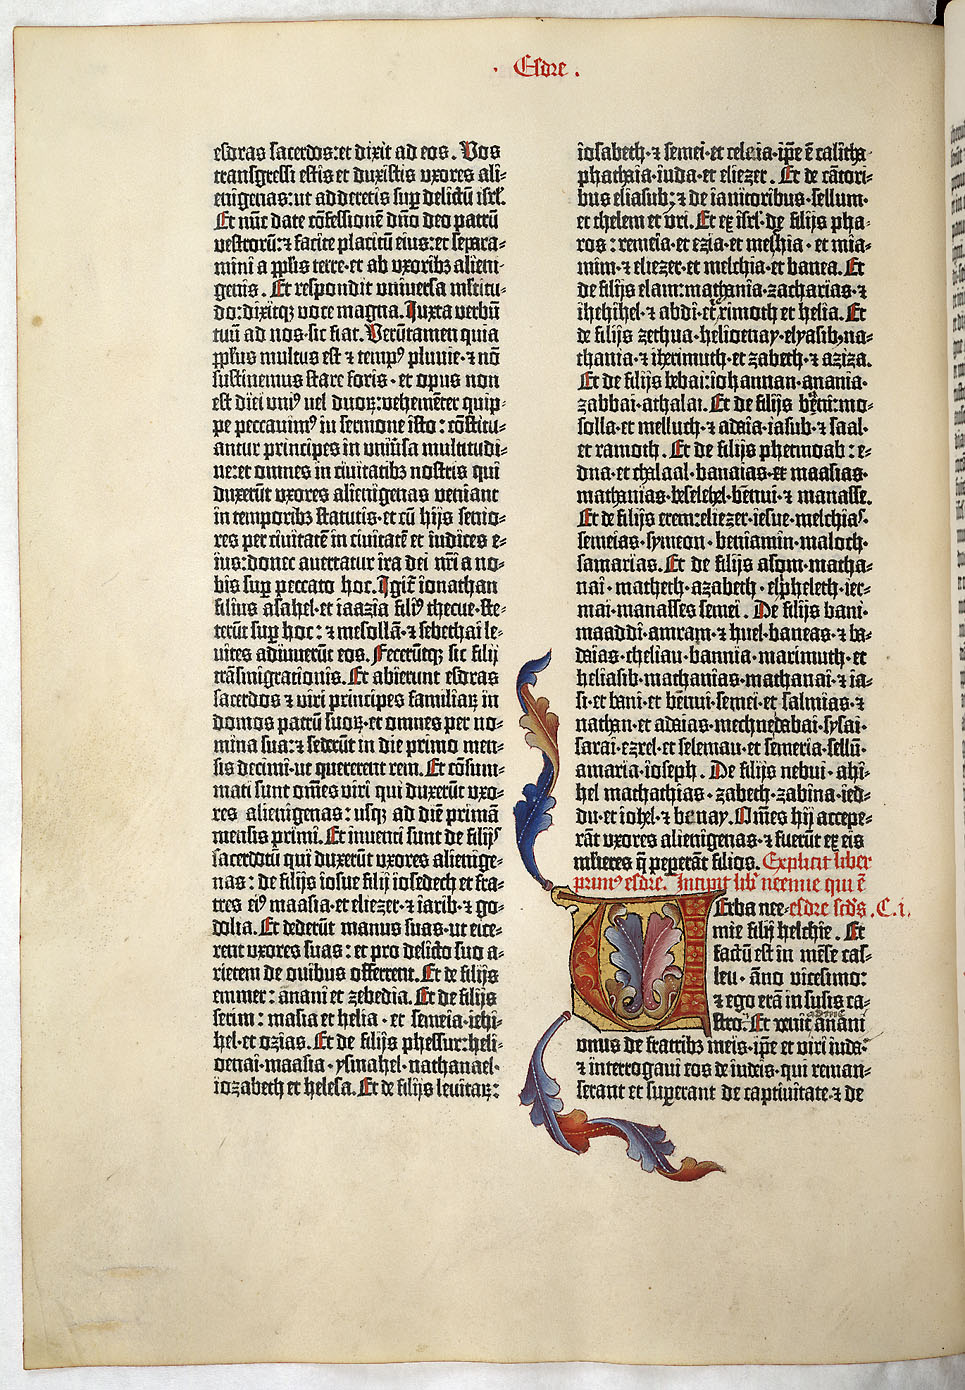 · Esdre ·
esdras sacerdos: et dixit ad eos. Vos
transgressi estis et duxistis uxores ali-
enigenas: ut adderetis sup̄ delictū isrl̄.
Et nūc date cōfessionē dn̄o deo patrū
vestrorū: ⁊ facite placitū eius: et separa-
mini a ppl̄is terre · et ab uxoribꝫ alieni-
genis. Et respondit universa mltitu-
do: dixitqꝫ voce magna. Juxta verbū
tuū ad nos · sic fiat. Verūtamen quia
ppl̄us multus est ⁊ tempꝰ pluvie · ⁊ nō
sustinemus stare foris · et opus non
est diei uniꝰ vel duoꝝ: vehemēter quip-
pe peccavimꝰ in sermone isto: cōstitu-
antur principes in univ̄sa multitudi-
ne: et omnes in civitatibꝫ nostris qui
duxerūt uxores alienigenas veniant
in temporibꝫ statutis · et cū hijs senio-
res per civitatē in civitatē et iudices e-
ius: donec avertatur ira dei nr̄i a no-
bis sup̄ peccato hoc. Igit᷑ ionathan
filius asahel · et iaazia filiꝰ thecue · ste-
terūt sup̄ hoc: ⁊ mesollā · ⁊ sebethai le-
vites adiuverūt eos. Fecerūtqꝫ sic filij
trāsmigrationis. Et abierunt esdras
sacerdos ⁊ viri principes familiaꝝ in
domos patrū suoꝝ · et omnes per no-
mina sua: ⁊ sederūt in die primo men-
sis decimi · ut quererent rem. Et cōsum-
mati sunt om̄es viri qui duxerūt uxo-
res alienigenas: usqꝫ ad diē primā
mensis primi. Et inventi sunt de filijs
sacerdotū qui duxerūt uxores alienige-
nas: de filijs iosue filij iosedech et fra-
tres eiꝰ maasia · et eliezer · ⁊ iarib · ⁊ go-
dolia. Et dederūt manus suas · ut eice-
rent uxores suas: et pro delicto suo a-
rietem de ovibus offerrent. Et de filijs
emmer: anani et zebedia. Et de filijs
serim: masia et helia · et semeia · iehi-
hel · et ozias. Et de filijs phessur: heli-
oenai · maasia · ysmahel · nathanael ·
iozabeth et helesa. Et de filijs levitaꝝ:
iosabeth · ⁊ semei · et celaia · ip̄e ē calitha ·
phathaia · iuda · et eliezer. Et de cātori-
bus eliasub; ⁊ de ianitoribus · sellum ·
et thelem et uri. Et ex isrl̄ · de filijs pha-
ros: remeia · et ezia · et melchia · et mia-
mim · ⁊ eliezer · et melchia · et banea. Et
de filijs elam: mathania · zacharias · ⁊
ihehihel · ⁊ abdi · et rimoth et helia. Et
de filijs zethua · helioenay · elyasib · na-
thania · ⁊ iherimuth · et zabeth · ⁊ aziza.
Et de filijs bebai: iohannan · anania ·
zabbai · athalai. Et de filijs benni: mo-
solla · et melluch · ⁊ adaia · iasub · ⁊ saal ·
et ramoth. Et de filijs phetmoab: e-
dna · et chalaal · banaias · et maasias ·
mathanias · beselehel · bēnui · ⁊ manasse.
Et de filijs erem: eliezer · iesue · melchias ·
semeias · symeon · beniamin · maloch ·
samarias. Et de filijs asom · matha-
nai · matheth · azabeth · elipheleth · ier-
mai · manasses semei. De filijs bani ·
maaddi · amram · ⁊ huel · baneas · ⁊ ba-
daias · cheliau · bannia · marimuth · et
heliasib · mathanias · mathanai · ⁊ ia-
si · et bani · et bēnui · semei · et salmias · ⁊
nathan · et adaias · mechnedabai · sysai ·
sarai · ezrel · et selemau · et semeria · sellū ·
amaria · ioseph. De filijs nebui · ahi-
hel mathathias · zabeth · zabina · ied-
du · et iohel · ⁊ banay. Om̄es hij accepe-
rāt uxores alienigenas · ⁊ fuerūt ex eis
ml̄ieres q̄ pepererāt filios. Explicit liber
primꝰ esdre. Incipit lib̄ neemie qui ē
Erba nee- esdre scd̄s. C. i.
mie filij helchie. Et
factū est in mēse cas-
leu · āno vicesimo:
⁊ ego erā in susis ca-
stro. Et venit ad me anani
unus de fratribꝫ meis · ip̄e et viri iuda ·
⁊ interrogavi eos de iudeis · qui reman-
serant et superant de captivitate · ⁊ de